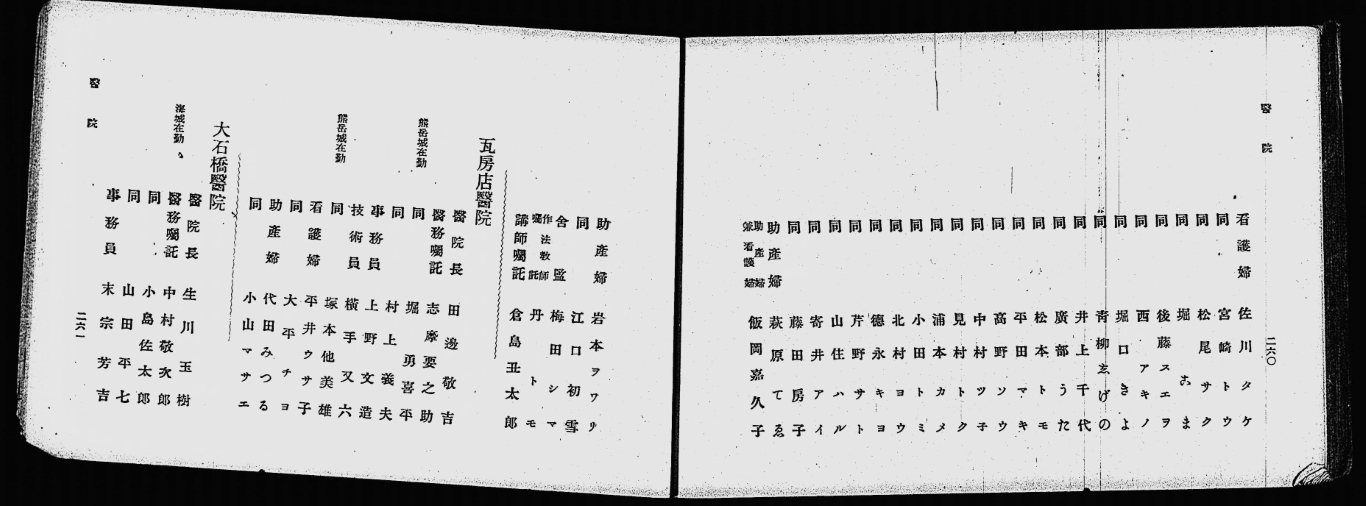 醫院
二六〇
看護婦 佐川タケ
同 宮崎トウ
同 松尾サク
同 堀おま
同 後藤スエヲ
同 西アキノ
同 堀口きよ
同 青柳ゑげの
同 井上千代
同 廣部うた
同 松本トモ
同 平田マキ
同 高野ソウ
同 中村ツ子
同 見村トク
同 浦本カメ
同 小田トミ
同 北村ヨウ
同 德永キヨ
同 芹野サト
同 山住ハル
同 寄井アイ
同 藤田房子
助產婦 萩原てゑ
助產婦兼看護婦 飯岡嘉久子
助產婦 岩本ヲワリ
同 江口初雪
舍監 梅田シマ
作法敎師囑託 丹トモ
講師囑託 倉島丑太郎
瓦房店醫院
醫院長 田邊敬吉
醫務囑託 志摩要之助
熊岳城在勤 同 堀勇喜平
同 村上義夫
事務員 上野文造
技術員 橫手又六
熊岳城在勤 同 塚本他美雄
看護婦 平井ウサ子
同 大平チヨ
助產婦 代田みつる
同 小山マサエ
大石橋醫院
醫院長 生川玉樹
醫務囑託 中村敬次郎
海城在勤 同 小島佐太郎
同 山田平七
事務員 末宗芳吉
醫院
二六一